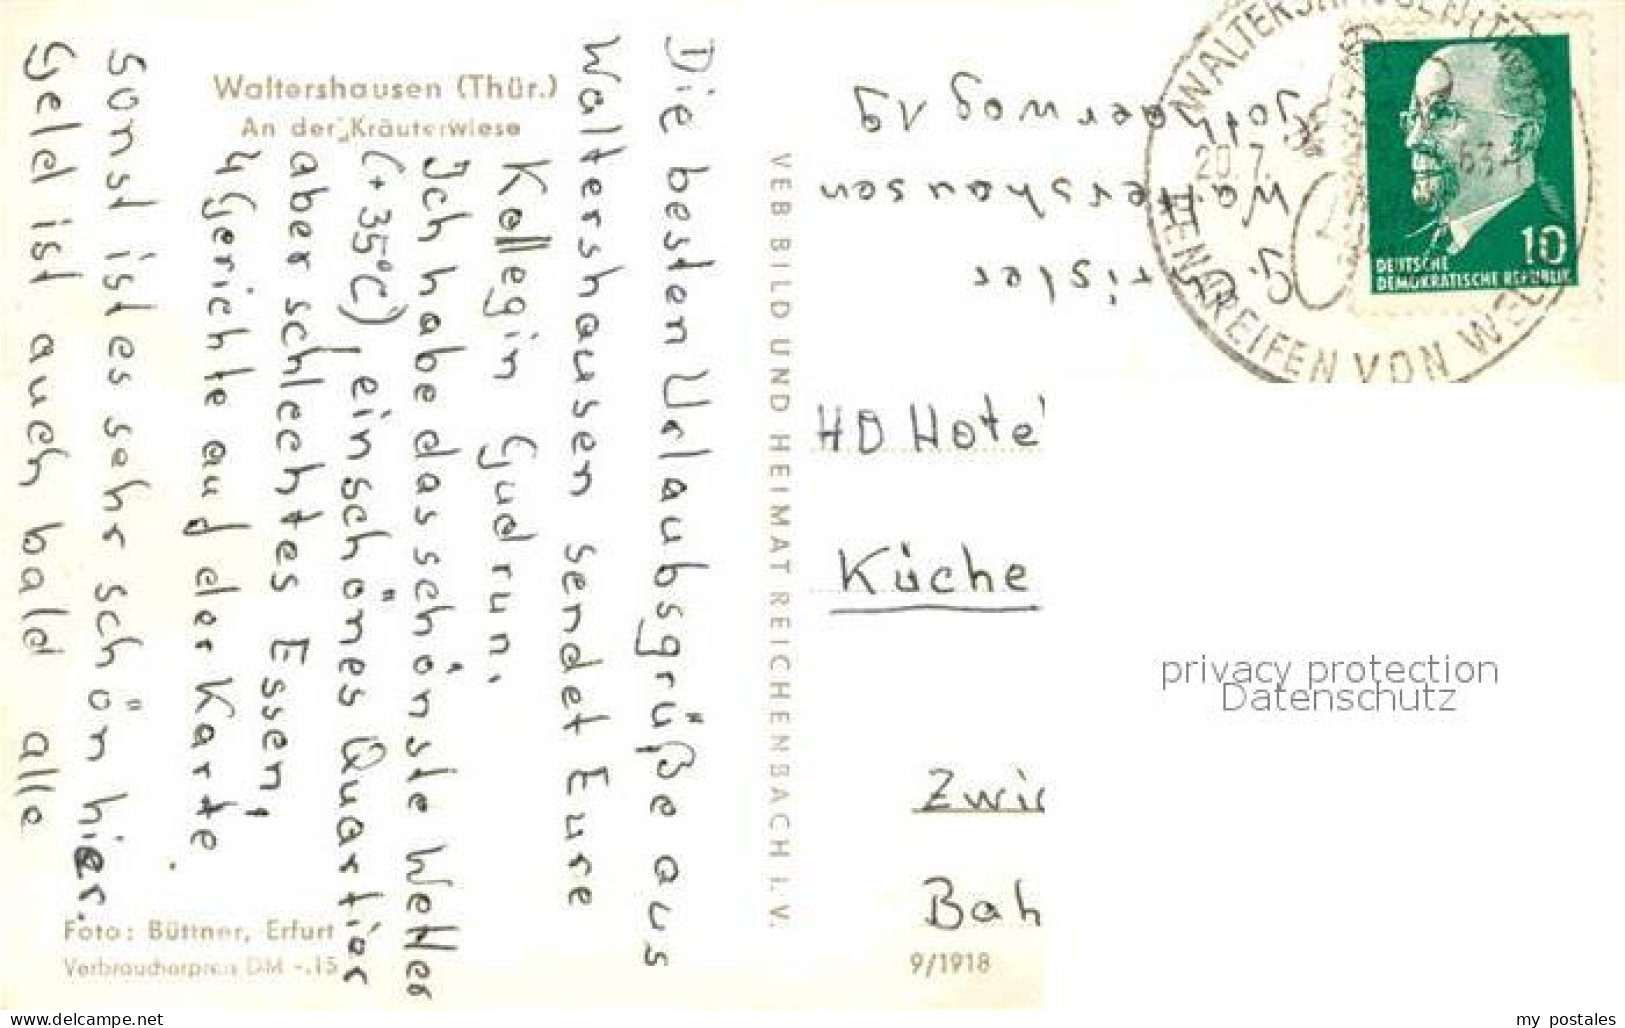 Waltershausen (Thür.)
An der „Kräuterwiese
Die besten Urlaubsgrüße aus
Waltershausen sendet Eure
Kollegin Gudrun.
Ich habe das schönste Wetter
(+35°C), ein schönes Quartier
aber schlechtes Essen,
4 Gerichte auf der Karte.
Sonst ist es sehr schön hier.
Geld ist auch bald alle
Foto: Büttner, Erfurt
Verbraucherpreis DM -.15
VEB BILD UND HEIMAT REICHENBACH i. V.
9/1918
G. risler
Waltershausen
Gothaerweg 19
WALTERSHAUSEN (THÜR
20.7. 63
REIFEN VON
10
DEUTSCHE
DEMOKRATISCHE REPUBLIK
HO Hotel
Küche
Zwic
Bah
privacy protection
Datenschutz
www.delcampe.net
my_postales